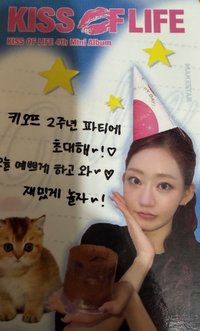 KISS OF LIFE
KISS OF LIFE 4th Mini Album
MAKESTAR
키오프 2주년 파티에
초대해~!♡
오늘 예쁘게 하고 와~♡
재밌게 놀자~!
KISS
OF LIFE